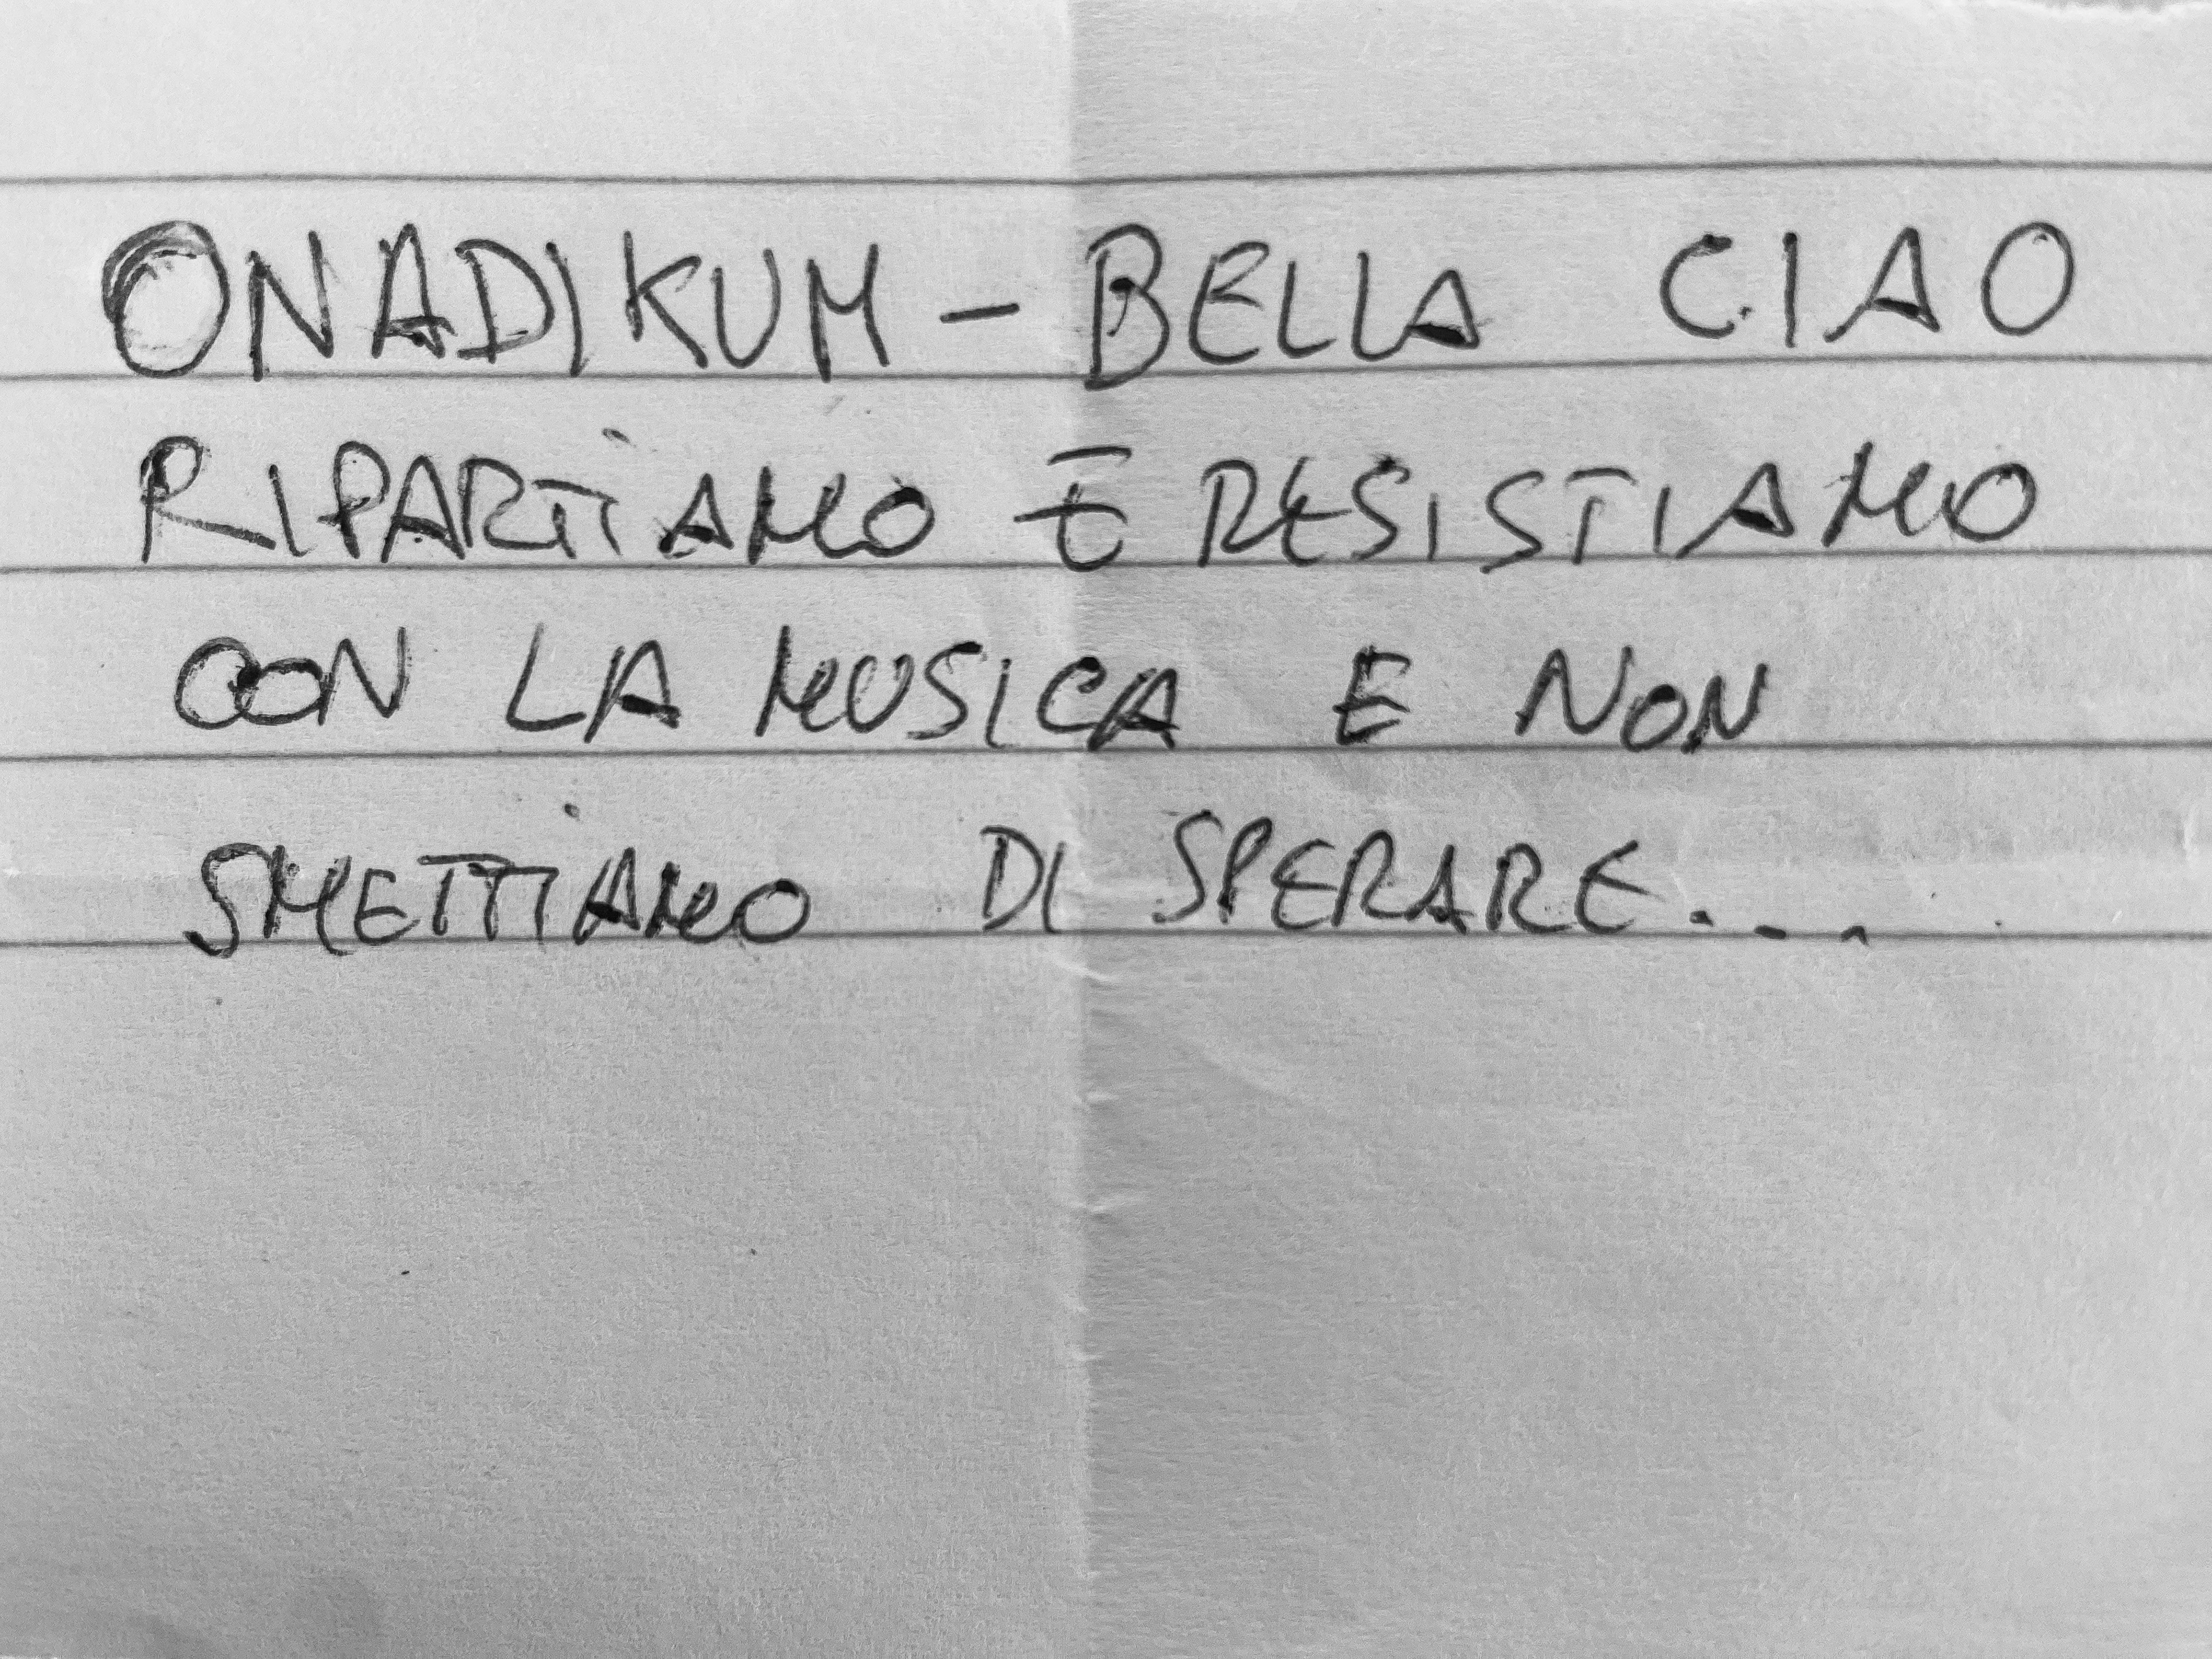 ONADIKUM - BELLA CIAO
RIPARTiAMO E RESISTIAMO
CON LA MUSICA E NON
SMETTiAMO DI SPERARE...